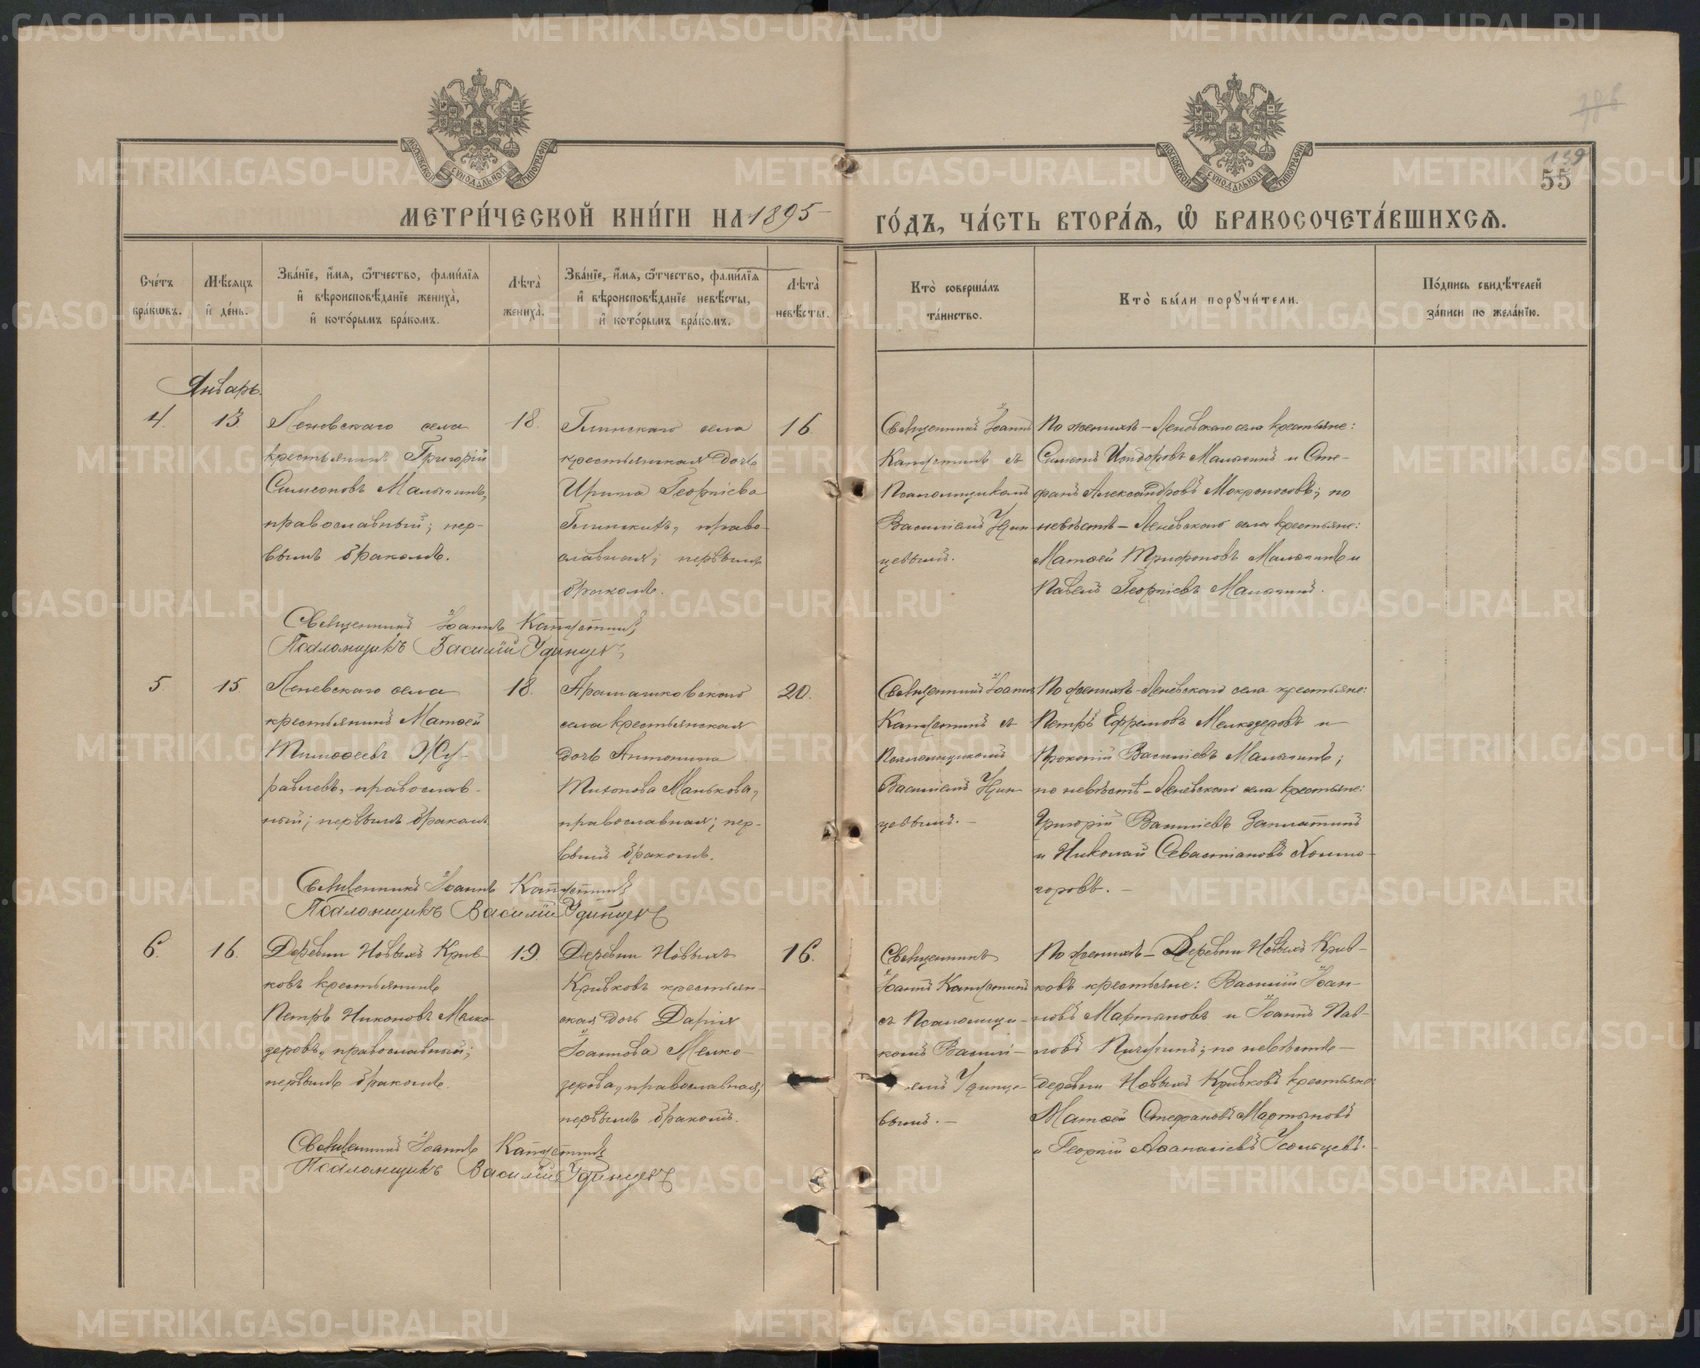 МЕТРИ́ЧЕСКОЙ КНИ́ГИ НА 1895 ГО́ДЪ, ЧА́СТЬ ВТОРА́Я, Ѽ БРАКОСОЧЕТА́ВШИХСЯ.
139
55
Сче́тъ бра́кѡвъ.
Мѣ́сяцъ и҆ де́нь.
Зва́нїе, и҆́мя, ѻ҆́тчество, фами́лїя
и҆ вѣроисповѣ́данїе жениха̀,
и҆ кото́рымъ бра́комъ.
Лѣта̀ жениха̀.
Зва́нїе, и҆́мя, ѻ҆́тчество, фами́лїя
и҆ вѣроисповѣ́данїе невѣ́сты,
и҆ кото́рымъ бра́комъ.
Лѣта̀ невѣ́сты.
Кто̀ соверша́лъ та́инство.
Кто̀ бы́ли порꙋчи́тели.
По́дпись свидѣ́телей за́писи по жела́нїю.
Январь.
4.
13
Леневскаго села
крестьянинъ Григорій
Симеоновъ Малыгинъ,
православный; пер-
вымъ бракомъ.
18.
Глинскаго села
крестьянская дочь
Ирина Георгіева
Глинскихъ, право-
славная; первымъ
бракомъ.
16
Священникъ Іоаннъ
съ
Псаломщикомъ
Василіемъ Удин-
цевымъ.
По женихѣ – Леневскаго села крестьяне:
Симеонъ Исидоровъ Малыгинъ и Сте-
фанъ Александровъ Мокроносовъ; по
невѣстѣ – Леневскаго села крестьяне:
Матѳей Трифоновъ Малыгинъ и
Павелъ Георгіевъ Малыгинъ.
Священникъ Іоаннъ
Псаломщикъ Василій Удинцевъ
5
15
Леневскаго села
крестьянинъ Матѳей
Тимоѳеевъ Жу-
равлевъ, православ-
ный; первымъ бракомъ
18.
Арамашковскаго
села крестьянская
дочь Антонина
Тихонова Манькова,
православная; пер-
вымъ бракомъ.
20.
Священникъ Іоаннъ
съ
Псаломщикомъ
Василіемъ Удин-
цевымъ. –
По женихѣ – Леневскаго села крестьяне:
Петръ Ефремовъ Мелкозеровъ и
Прокопій Василіевъ Малыгинъ;
по невѣстѣ – Леневскаго села крестьяне:
Григорій Василіевъ Заплатинъ
и Николай Севастіановъ Холмо-
горовъ. –
Священникъ Іоаннъ
Псаломщикъ Василій Удинцевъ
6.
16.
Деревни Новыхъ Крив-
ковъ крестьянинъ
Петръ Никоновъ Мелко-
зеровъ, православный;
первымъ бракомъ.
19.
Деревни Новыхъ
Кривковъ крестьян-
ская дочь Дарія
Іоаннова Мелко-
зерова, православная;
первымъ бракомъ.
16.
Священникъ
Іоаннъ
съ Псаломщи-
комъ Васил-
іемъ Удинце-
вымъ. –
По женихѣ – Деревни Новыхъ Крив-
ковъ крестьяне: Василій Іоан-
новъ Мартьяновъ и Іоаннъ Пав-
ловъ; по невѣстѣ –
деревни Новыхъ Кривковъ крестьяне:
Матѳей Стефановъ Мартьяновъ
и Георгій Аѳанасіевъ Усольцевъ.
Священникъ Іоаннъ
Псаломщикъ Василій Удинцевъ
METRIKI.GASO-URAL.RU